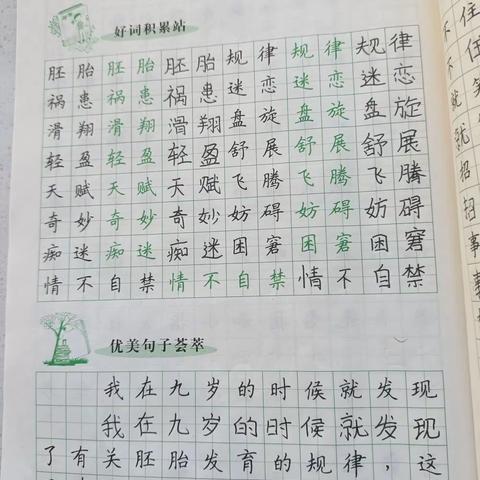 好词积累站
胚胎胚胎胚胎规律规律规律
祸患祸患祸患迷恋迷恋迷恋
滑翔滑翔滑翔盘旋盘旋盘旋
轻盈轻盈轻盈舒展舒展舒展
天赋天赋天赋飞腾飞腾飞腾
奇妙奇妙奇妙妨碍妨碍妨碍
痴迷痴迷痴迷困窘困窘困窘
情不自禁情不自禁情不自禁
优美句子荟萃
我在九岁的时候就发现
我在九岁的时候就发现
了有关胚胎发育的规律，这
不住
不住
就笑
就
招
招
事
事